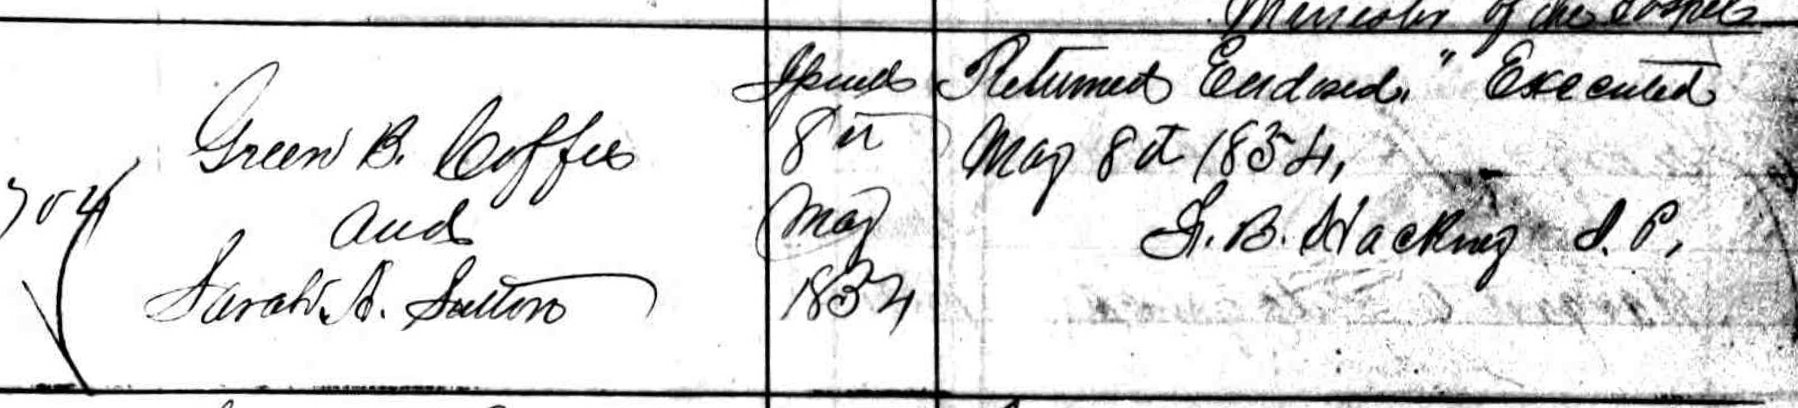 Minister of the Gospel
704
Green B. Coffee
and
Sarah A. Sutton
Issued
8th
May
1854
Returned Endorsed, "Executed
May 8th 1854,
G. B. Hackney J. P.